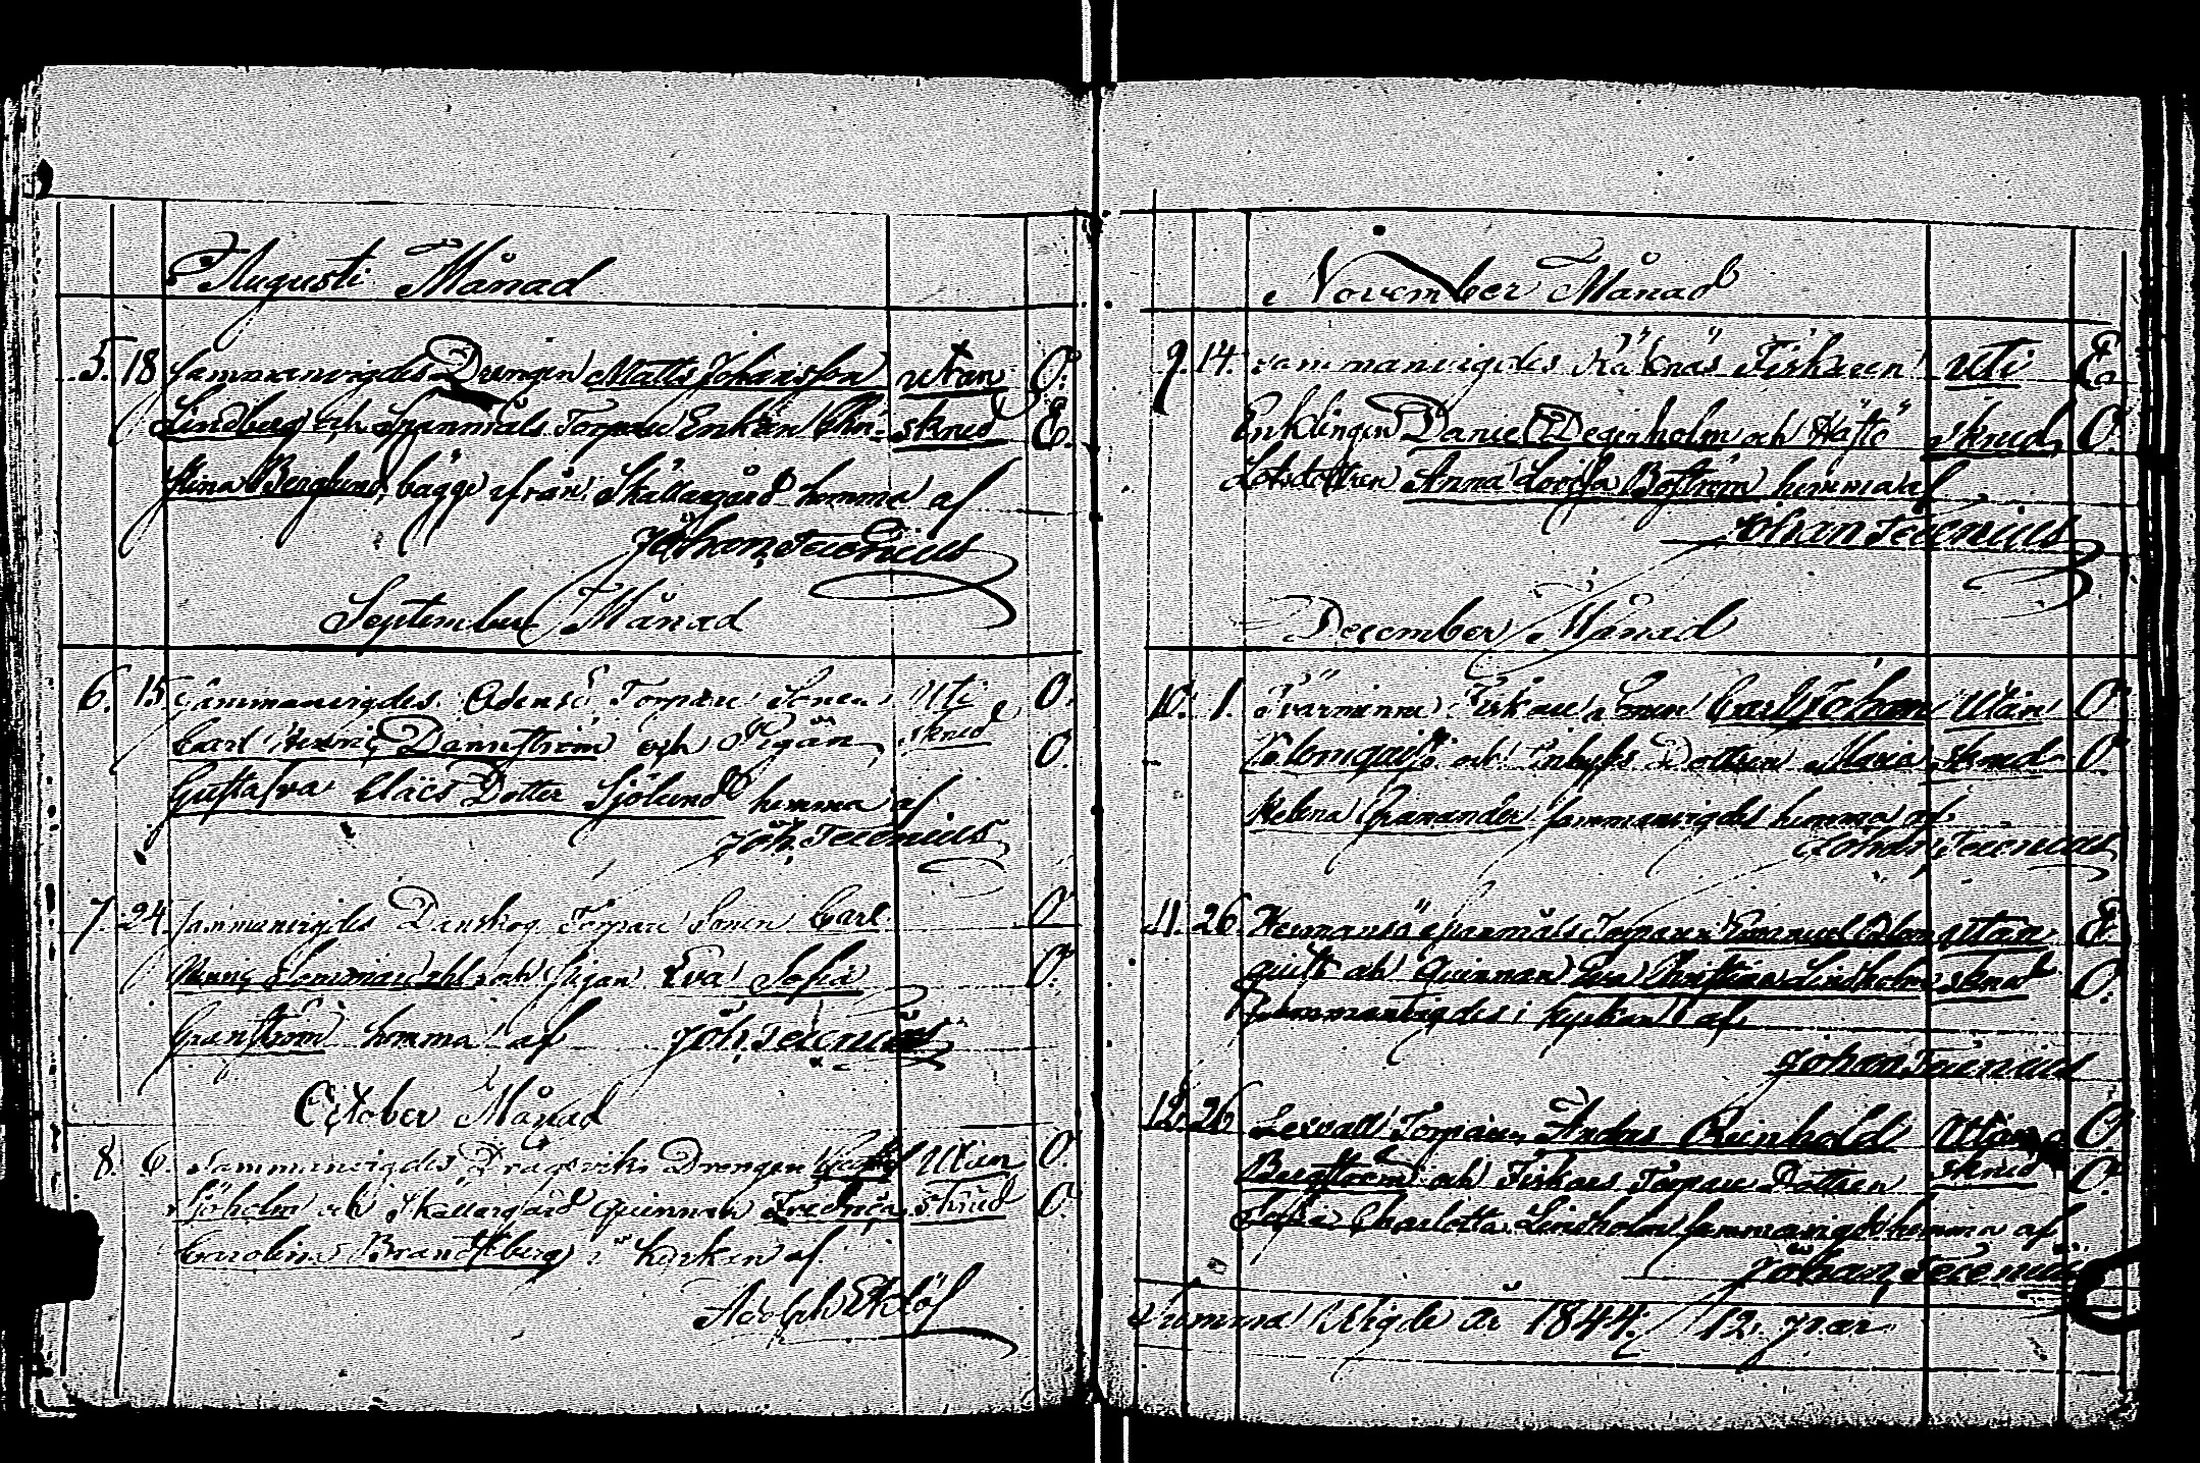 Augusti Månad
5. 18 Sammanvigdes Drengen Matts Johansson utan O.
Lindberg och Spanmåls Torpare Enkan Chri- skrud E.
stina Berglund, bägge ifrån Skällargård hemma af
Johan Tecenius
September Månad
6. 15 Sammanvigdes Odensö Torpare Sonen Uti O.
Carl Henric Dannström och Pigan skrud O.
Gustafva Claës Dotter Sjölund hemma af
Joh. Tecenius
7. 24 Sammanvigdes Danskog Torpare Sonen Carl O.
och Pigan Eva Sofia O.
Granström hemma af Joh. Tecenius
October Månad
8. 6. Sammanvigdes Dragsviks Drengen Utan O.
Sjöholm och Skällargård Quinnan Fredrica skrud O.
Carolina Brandtberg i kyrkan af
Adolph Ekelöf
November Månad
9. 14. Sammanvigdes Fiskaren Uti E.
Enklingen Daniel Degerholm och Hästö skrud O.
Lotsdottren Anna Lovisa Boström hemma af
Johan Tecenius
December Månad
10. 1. Tvärminne Fiskare Sonen Carl Johan Utan O.
Blomqvist och Inhyses Dottren Maria skrud O.
Helena Granander sammanvigdes hemma af
Johan Tecenius
11. 26. Hermansö Spanmåls Torparen Emanuel Blom utan E.
quist och Quinnan Eva Christina Lindholm skrud O.
Sammanvigdes i kyrkan af
Johan Tecenius
12. 26 Lervall Torparen Anders Reinhold Utan O.
Bergström och Fiskars Torpare Dottren skrud O.
Sofia Charlotta Lindholm sammanvigde hemma af
Johan Tecenius
Summa Vigde år 1844. 12. par